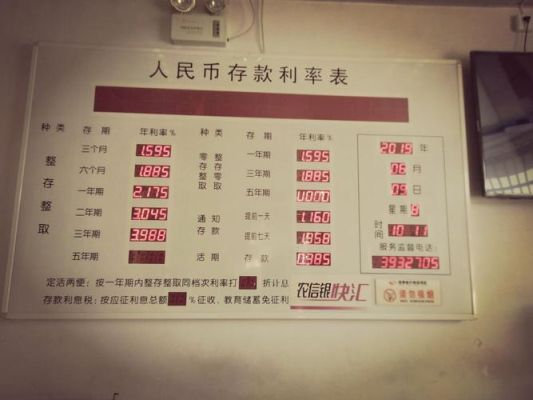 人民币存款利率表
种类 存期 年利率% 种类 存期 年利率%
整存整取
三个月 1.595
六个月 1.885
一年期 2.175
二年期 3.045
三年期 3.988
五年期
零存整取 整存零取
一年期 1.595
三年期 1.885
五年期
通知存款
提前一天 1.160
提前七天 1.958
活期 存款 0.385
2019 年
06 月
09 日
星期
时间 10 11
服务监督电话:
3932705
定活两便:按一年期内整存整取同档次利率打 折计息
存款利息税:按应征利息总额 %征收、教育储蓄免征利
农信银快汇
请勿吸烟